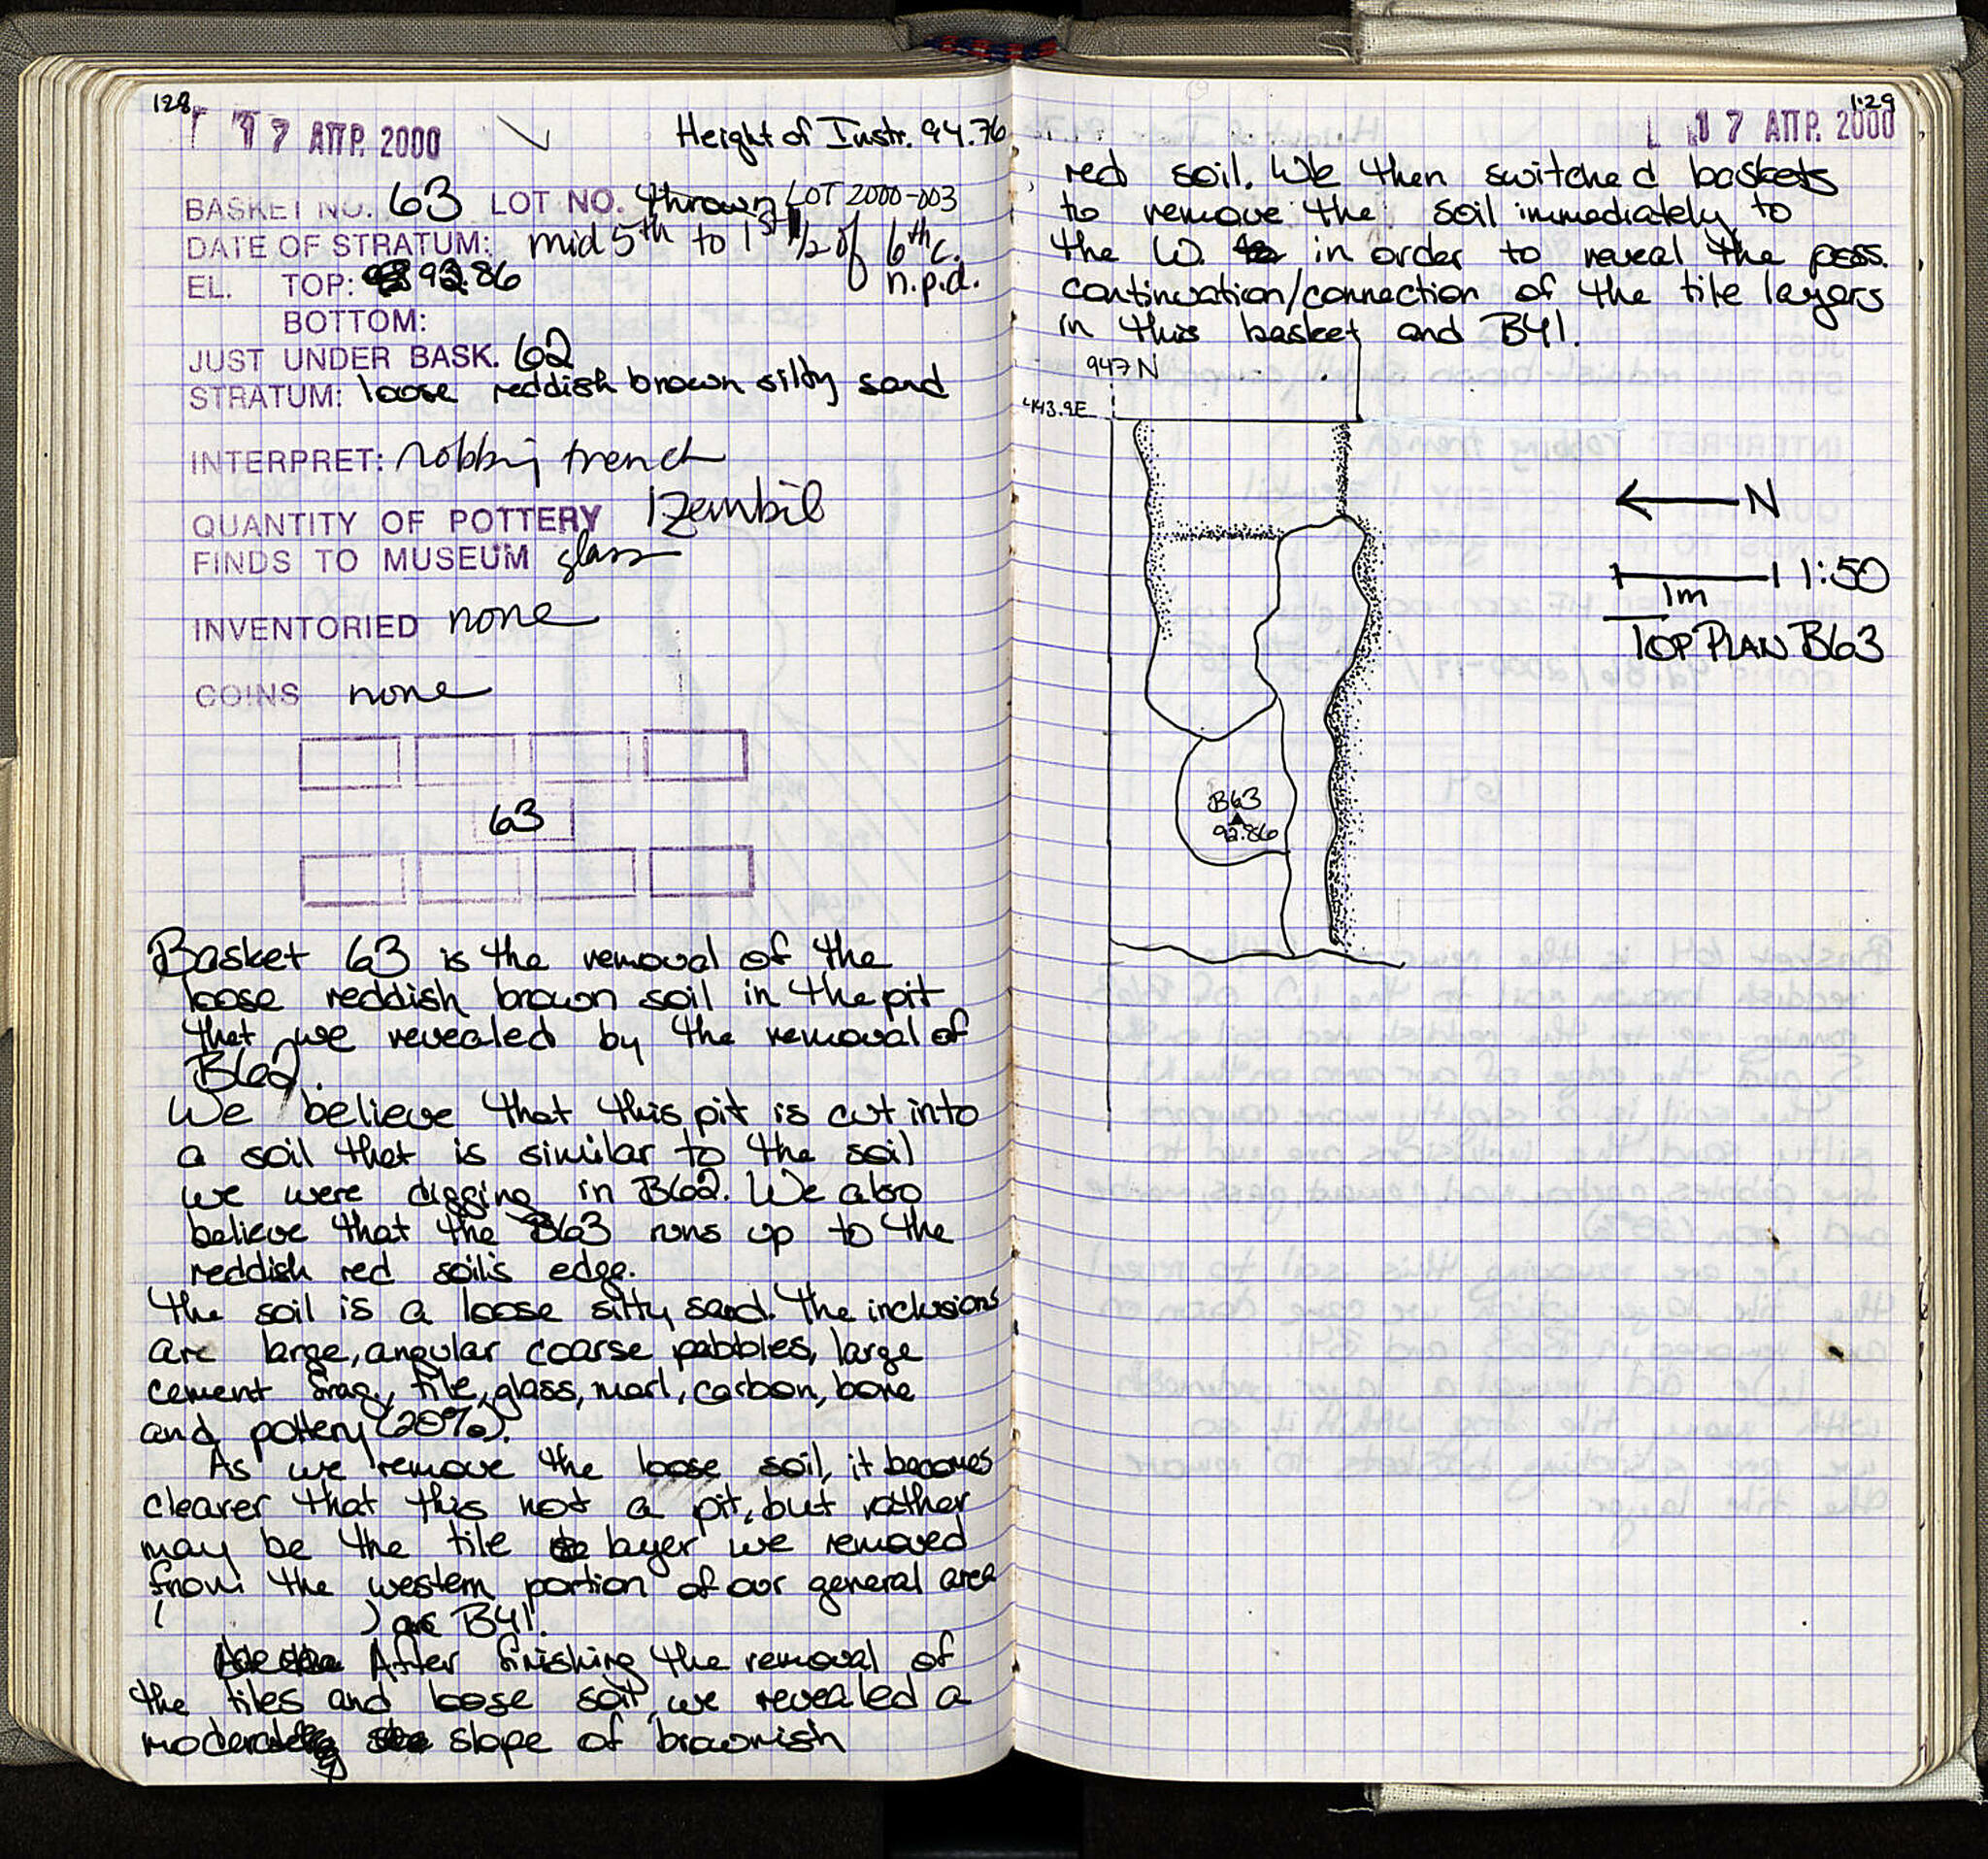 128
17 ΑΠΡ. 2000
Height of Instr. 94.76
BASKET NO. 63 LOT NO. thrown LOT 2000-003
DATE OF STRATUM: mid 5th to 1st 1/2 of 6th c.
n.p.d.
EL. TOP: 92.86
BOTTOM:
JUST UNDER BASK. 62
STRATUM: loose reddish brown silty sand
INTERPRET: robbing trench
QUANTITY OF POTTERY 1 zembil
FINDS TO MUSEUM glass
INVENTORIED none
COINS none
63
Basket 63 is the removal of the
loose reddish brown soil in the pit
that we revealed by the removal of
B62.
We believe that this pit is cut into
a soil that is similar to the soil
we were digging in B62. We also
believe that the B63 runs up to the
reddish red soil's edge.
the soil is a loose silty sand. The inclusions
are large, angular coarse pebbles, large
cement frag, tile, glass, marl, carbon, bone
and pottery (20%).
As we remove the loose soil, it becomes
clearer that this not a pit, but rather
may be the tile layer we removed
from the western portion of our general area
( ) as B41.
After finishing the removal of
the tiles and loose soil, we revealed a
moderately slope of brownish
129
17 ΑΠΡ. 2000
red soil. We then switched baskets
to remove the soil immediately to
the W. in order to reveal the poss.
continuation/connection of the tile layers
in this basket and B41.
947 N
443.9E
N
1:50
1m
TOP PLAN B63
B63
92.86